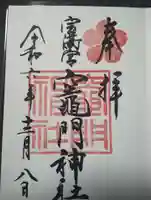 奉拝
宝満宮
竈門神社
令和年十二月八日